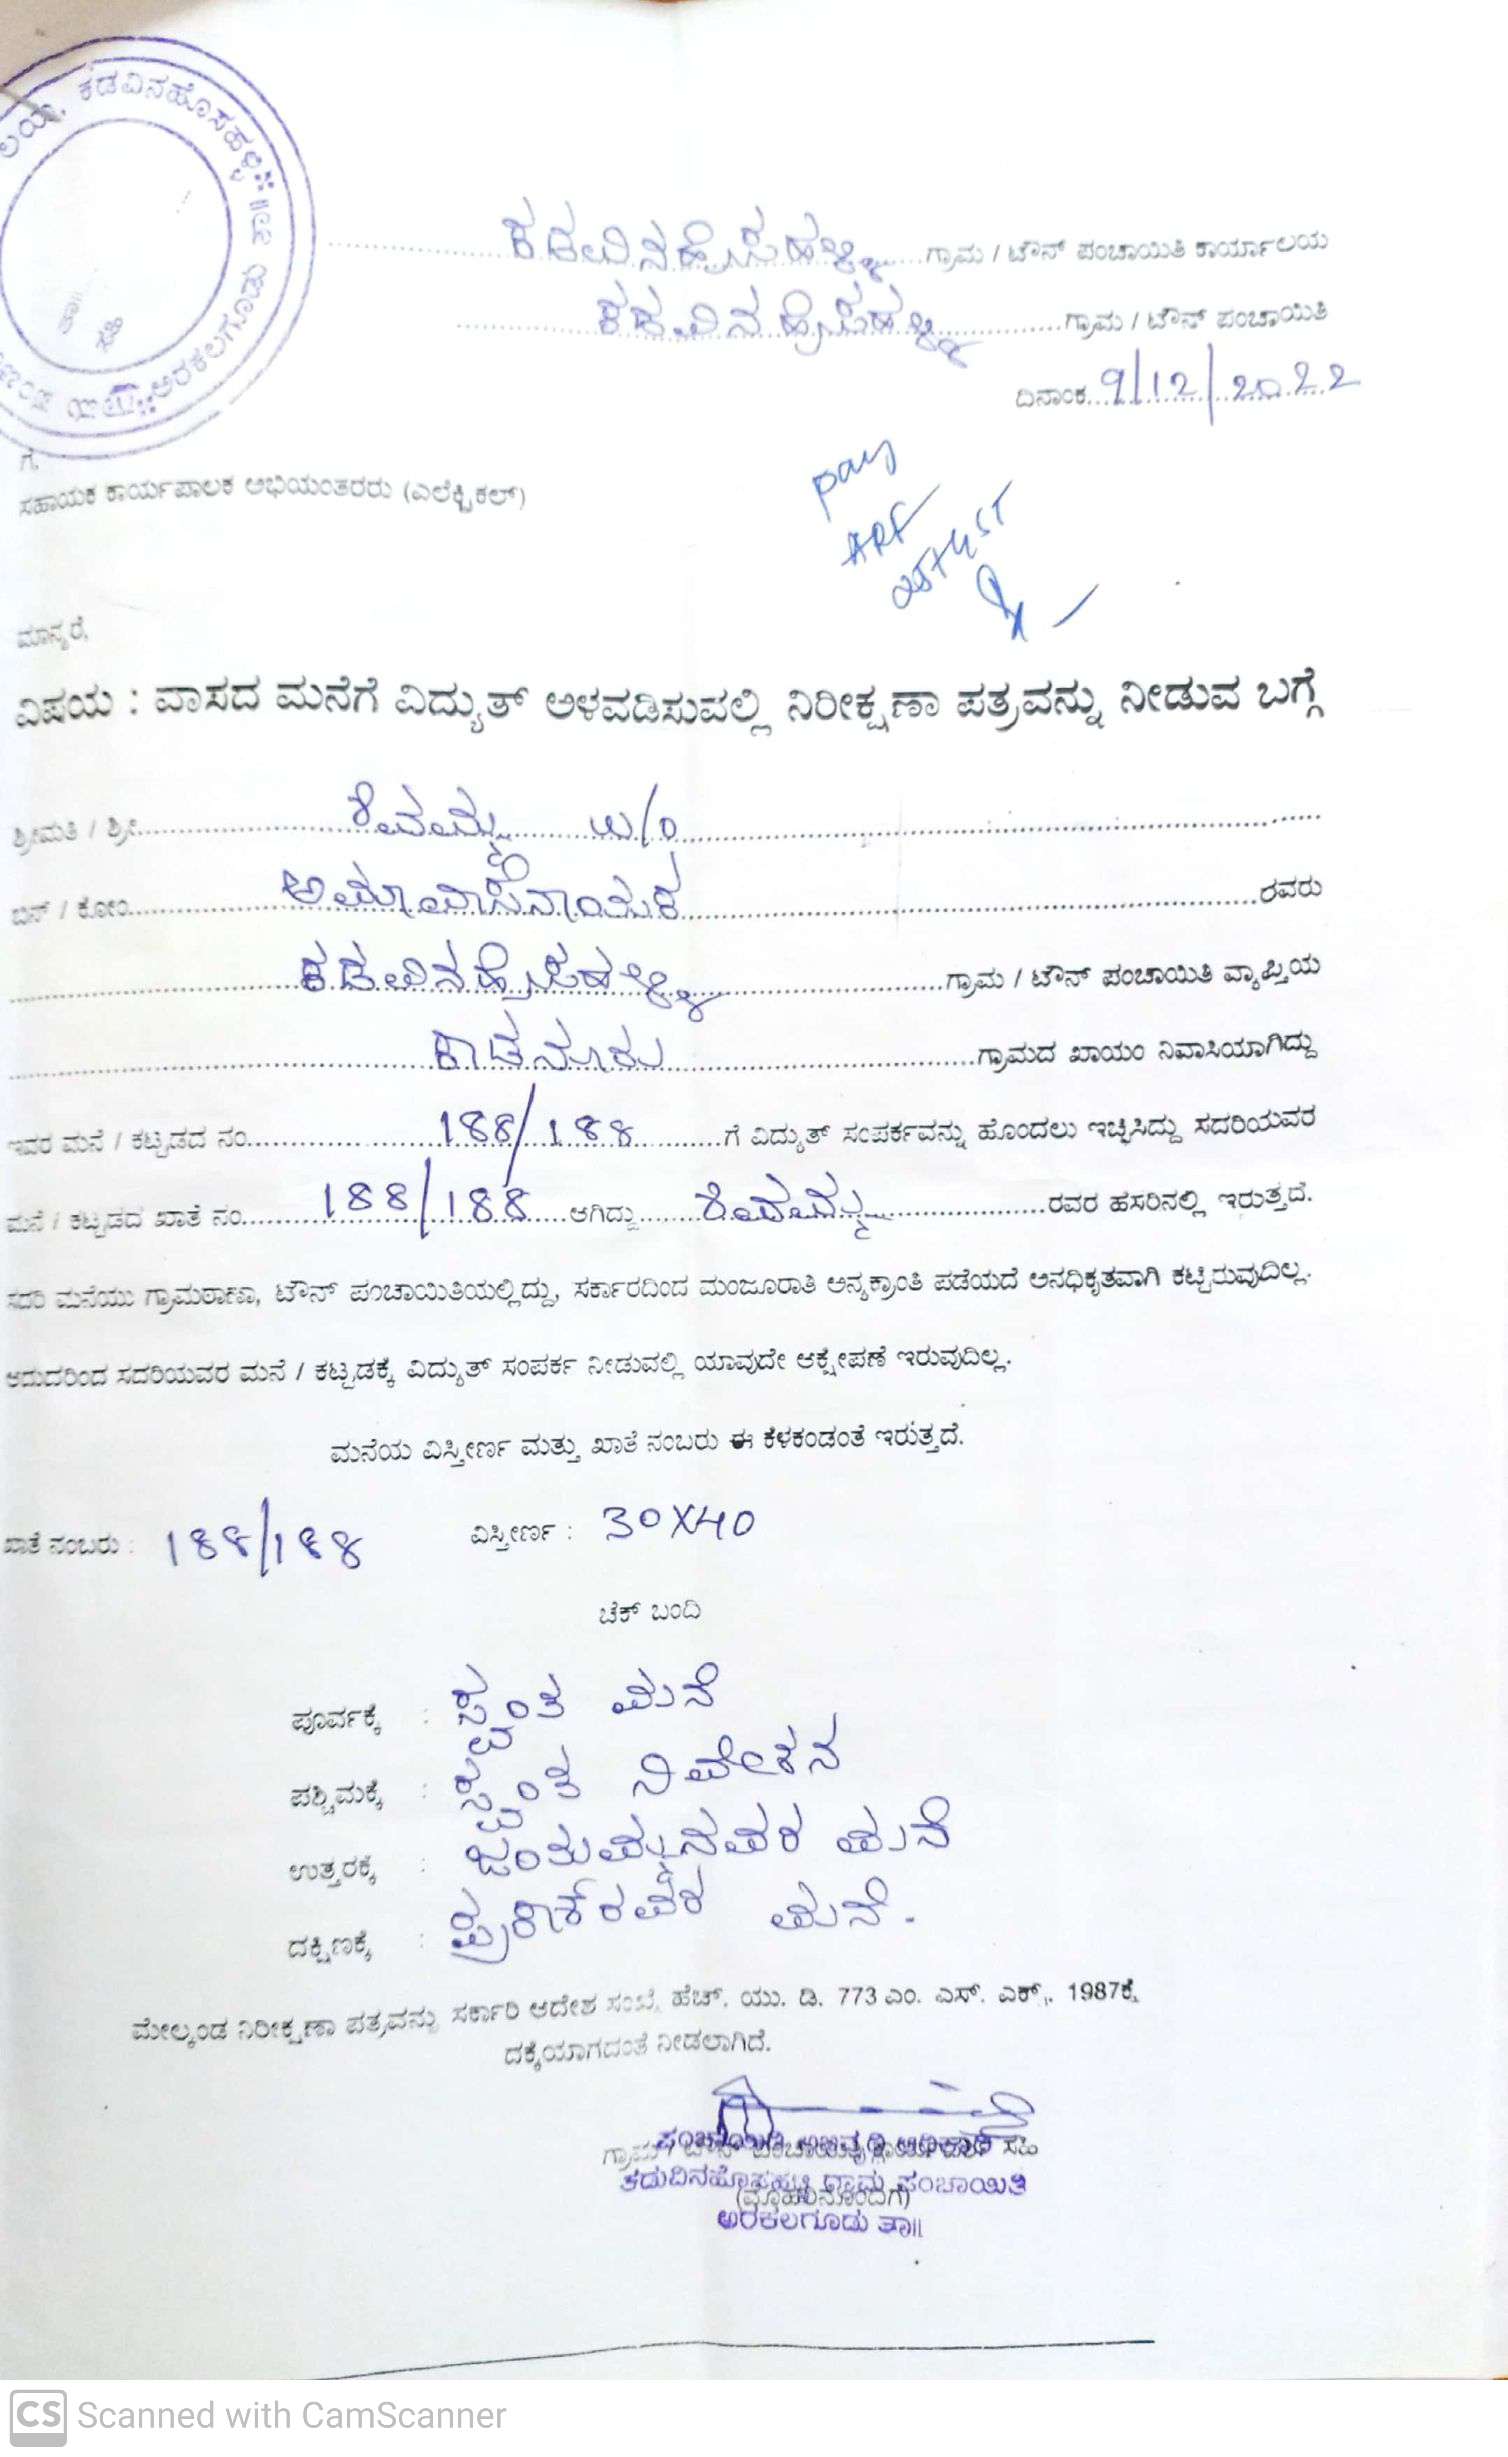 ಕಡವಿನಹೊಸಹಳ್ಳಿ
ಅರಕಲಗೂಡು
ಕಡವಿನಹೊಸಹಳ್ಳಿ ಗ್ರಾಮ / ಟೌನ್ ಪಂಚಾಯಿತಿ ಕಾರ್ಯಾಲಯ
ಕಡವಿನಹೊಸಹಳ್ಳಿ ಗ್ರಾಮ / ಟೌನ್ ಪಂಚಾಯಿತಿ
ದಿನಾಂಕ 9/12/2022
ಗೆ,
ಸಹಾಯಕ ಕಾರ್ಯಪಾಲಕ ಅಭಿಯಂತರರು (ಎಲೆಕ್ಟ್ರಿಕಲ್)
pay
ARF
ಮಾನ್ಯರೆ,
ವಿಷಯ : ವಾಸದ ಮನೆಗೆ ವಿದ್ಯುತ್ ಅಳವಡಿಸುವಲ್ಲಿ ನಿರೀಕ್ಷಣಾ ಪತ್ರವನ್ನು ನೀಡುವ ಬಗ್ಗೆ
ಶ್ರೀಮತಿ / ಶ್ರೀ ಶಿವಮ್ಮ w/o
ಬಿನ್ / ಕೋಂ ಅಮಾವಾಸೆನಾಯಕ ರವರು
ಕಡವಿನಹೊಸಹಳ್ಳಿ ಗ್ರಾಮ / ಟೌನ್ ಪಂಚಾಯಿತಿ ವ್ಯಾಪ್ತಿಯ
ಕಾಡನೂರು ಗ್ರಾಮದ ಖಾಯಂ ನಿವಾಸಿಯಾಗಿದ್ದು
ಇವರ ಮನೆ / ಕಟ್ಟಡದ ನಂ 188/188 ಗೆ ವಿದ್ಯುತ್ ಸಂಪರ್ಕವನ್ನು ಹೊಂದಲು ಇಚ್ಛಿಸಿದ್ದು ಸದರಿಯವರ
ಮನೆ / ಕಟ್ಟಡದ ಖಾತೆ ನಂ 188/188 ಆಗಿದ್ದು ಶಿವಮ್ಮ ರವರ ಹೆಸರಿನಲ್ಲಿ ಇರುತ್ತದೆ.
ಸದರಿ ಮನೆಯು ಗ್ರಾಮಠಾಣಾ, ಟೌನ್ ಪಂಚಾಯಿತಿಯಲ್ಲಿದ್ದು, ಸರ್ಕಾರದಿಂದ ಮಂಜೂರಾತಿ ಅನ್ಯಕ್ರಾಂತಿ ಪಡೆಯದೆ ಅನಧಿಕೃತವಾಗಿ ಕಟ್ಟಿರುವುದಿಲ್ಲ.
ಆದುದರಿಂದ ಸದರಿಯವರ ಮನೆ / ಕಟ್ಟಡಕ್ಕೆ ವಿದ್ಯುತ್ ಸಂಪರ್ಕ ನೀಡುವಲ್ಲಿ ಯಾವುದೇ ಆಕ್ಷೇಪಣೆ ಇರುವುದಿಲ್ಲ.
ಮನೆಯ ವಿಸ್ತೀರ್ಣ ಮತ್ತು ಖಾತೆ ನಂಬರು ಈ ಕೆಳಕಂಡಂತೆ ಇರುತ್ತದೆ.
ಖಾತೆ ನಂಬರು : 188/188 ವಿಸ್ತೀರ್ಣ : 30X40
ಚೆಕ್ ಬಂದಿ
ಪೂರ್ವಕ್ಕೆ : ಸ್ವಂತ ಮನೆ
ಪಶ್ಚಿಮಕ್ಕೆ : ಸ್ವಂತ ನಿವೇಶನ
ಉತ್ತರಕ್ಕೆ : ಜಯಮ್ಮನವರ ಮನೆ
ದಕ್ಷಿಣಕ್ಕೆ : ಪ್ರಕಾಶರವರ ಮನೆ.
ಮೇಲ್ಕಂಡ ನಿರೀಕ್ಷಣಾ ಪತ್ರವನ್ನು ಸರ್ಕಾರಿ ಆದೇಶ ಸಂಖ್ಯೆ, ಹೆಚ್. ಯು. ಡಿ. 773 ಎಂ. ಎಸ್. ಎಕ್ಸ್. 1987ಕ್ಕೆ
ದಕ್ಕೆಯಾಗದಂತೆ ನೀಡಲಾಗಿದೆ.
ಪಂಚಾಯಿತಿ ಅಭಿವೃದ್ಧಿ ಅಧಿಕಾರಿ
ಗ್ರಾಮ / ಟೌನ್ ಪಂಚಾಯಿತಿ ಸಹಿ
ಕಡುವಿನಹೊಸಹಳ್ಳಿ ಗ್ರಾಮ ಪಂಚಾಯಿತಿ
(ಮೊಹರಿನೊಂದಿಗೆ)
ಅರಕಲಗೂಡು ತಾ||
CS Scanned with CamScanner